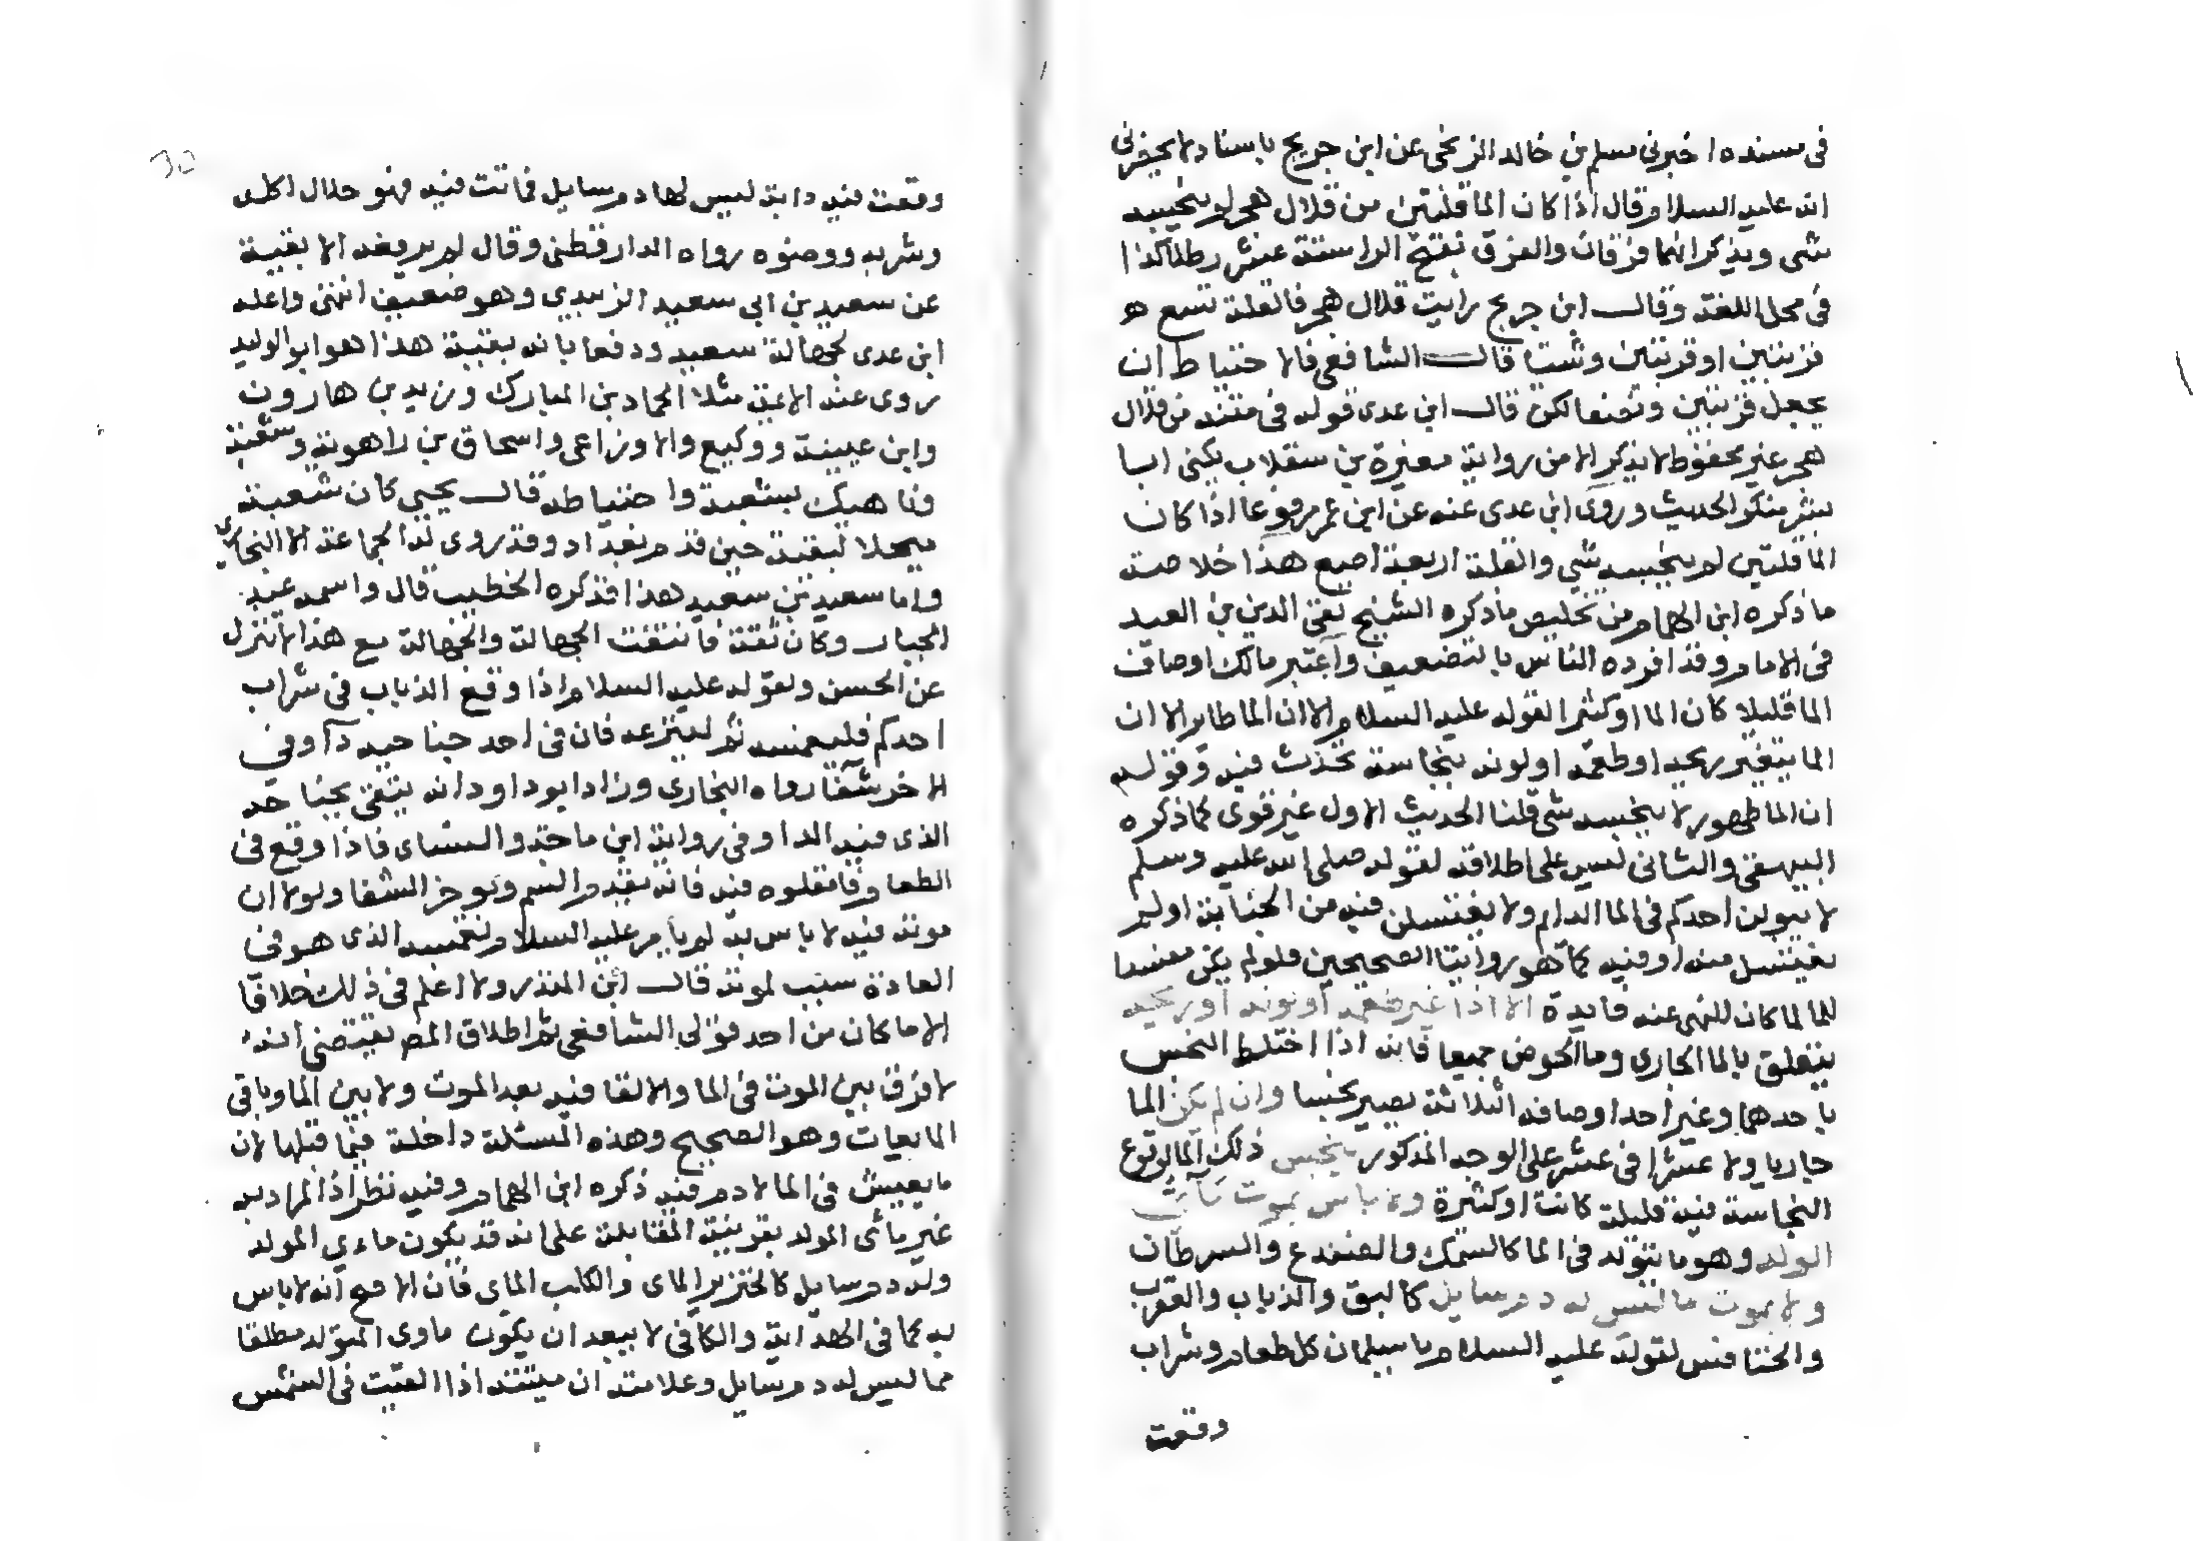 في مسنده اخبرني مسلم بن خالد الزنجي عن ابن جريج باسناد لا يحضرني
انه عليه السلام قال اذا كان الما قلتين من قلال هجر لم ينجسه
شي ويذكر انهما فرقان والفرق بفتح الرا ستة عشر رطلا كذا
في محل اللغة وقال ابن جريج رايت قلال هجر فالقلة تسع
قربتين او قربتين وشيئا قال الشافعي فالاحتياط ان
يجعل قربتين ونصفا لكن قال ابن عدى قوله في متنه من قلال
هجر غير محفوظ لا يذكر الا من رواية مغيرة بن سقلاب يكنى ابا
بشر منكر الحديث وروى ابن عدى عنه عن ابن عمر مرفوعا اذا كان
الما قلتين لم ينجسه شي والقلة اربعة اصع هذا خلاصة
ما ذكره ابن الهمام من تخليص ما ذكره الشيخ تقي الدين بن العيد
في الامام وقد افرده الناس بالتضعيف واعتبر مالك اوصاف
الما قليلا كان الما او كثيرا لقوله عليه السلام الا ان الما طاهر الا ان
الما يتغير ريحه او طعمه او لونه بنجاسة تحدث فيه وقوله
ان الما طهور لا ينجسه شي قلنا الحديث الاول غير قوى كما ذكره
البيهقي والثاني ليس على اطلاقه لقوله صلى الله عليه وسلم
لا يبولن احدكم في الما الدايم ولا يغتسلن فيه من الجنابة او ثم
يغتسل منه او فيه كما هو روايتا الصحيحين فلو لم يكن مفسدا
للما لما كان للنهي عنه فايدة الا اذا غير طعمه او لونه او ريحه
يتعلق بالما الجارى وما الحوض جميعا فانه اذا اختلط النجس
باحدهما وغير احد اوصافه الثلاثة يصير نجسا وان لم يكن الما
جاريا ولا عشرا في عشر على الوجه المذكور ينجس ذلك الما لوقوع
النجاسة فيه قليلة كانت او كثيرة ولا باس بموت مآئي
المولد وهو ما تتولد في الما كالسمك والضفدع والسرطان
ولا بموت ما ليس له دم سايل كالبق والذباب والعقرب
والخنافس لقوله عليه السلام يا سلمان كل طعام وشراب
وقعت
30
وقعت فيه دابة ليس لها دم سايل فماتت فيه فهو حلال اكله
وشربه ووضوه رواه الدارقطني وقال لم يرفعه الا بقية
عن سعيد بن ابي سعيد الزبيدي وهو ضعيف انتهى واعله
ابن عدى بجهالة سعيد ودفعا بان بقية هذا هو ابن الوليد
روى عنه الائمة مثل الحماد بن المبارك ويزيد بن هارون
وابن عيينة ووكيع والاوزاعى واسحاق بن راهويه وشعبة
وناهيك بشعبة واحتياطه قال يحيى كان شعبة
مبجلا لبقية حين قدم بغداد وقد روى له الجماعة الا البخاري
واما سعيد بن سعيد هذا فذكره الخطيب قال واسمه عبد
الجبار وكان ثقة فانتفت الجهالة والجهالة مع هذا لا تنزل
عن الحسن ولقوله عليه السلام اذا وقع الذباب في شراب
احدكم فليغمسه ثم لينزعه فان في احد جناحيه دآ وفي
الاخر شفآ رواه البخاري وزاد ابو داود انه يتقي بجناحه
الذى فيه الدا وفي رواية ابن ماجة والنساى فاذا وقع في
الطعام فامقلوه فيه فانه يقدم السم ويوخر الشفا ولولا ان
موته فيه لا باس به لم يأمر عليه السلام بغمسه الذى هو في
العادة سبب لموته قال ابن المنذر ولا اعلم في ذلك خلافا
الا ما كان من احد قولي الشافعي ثم اطلاق المص يقتضي انه
لا فرق بين الموت في الما والالقا فيه بعد الموت ولا بين الما وباقى
المايعات وهو الصحيح وهذه المسئلة داخلة فيما قبلها لان
ما يعيش في الما لا دم فيه ذكره ابن الهمام وفيه نظر اذ المراد به
غير مائى المولد بقرينة المقابلة على انه قد يكون مائي المولد
وله دم سايل كالخنزير الماى والكلب الماى فان الاصح انه لا باس
به كما في الهداية والكافي لا يبعد ان يكون ماوى المولد مطلقا
مما ليس له دم سايل وعلامته ان ميتته اذا القيت في الشمس